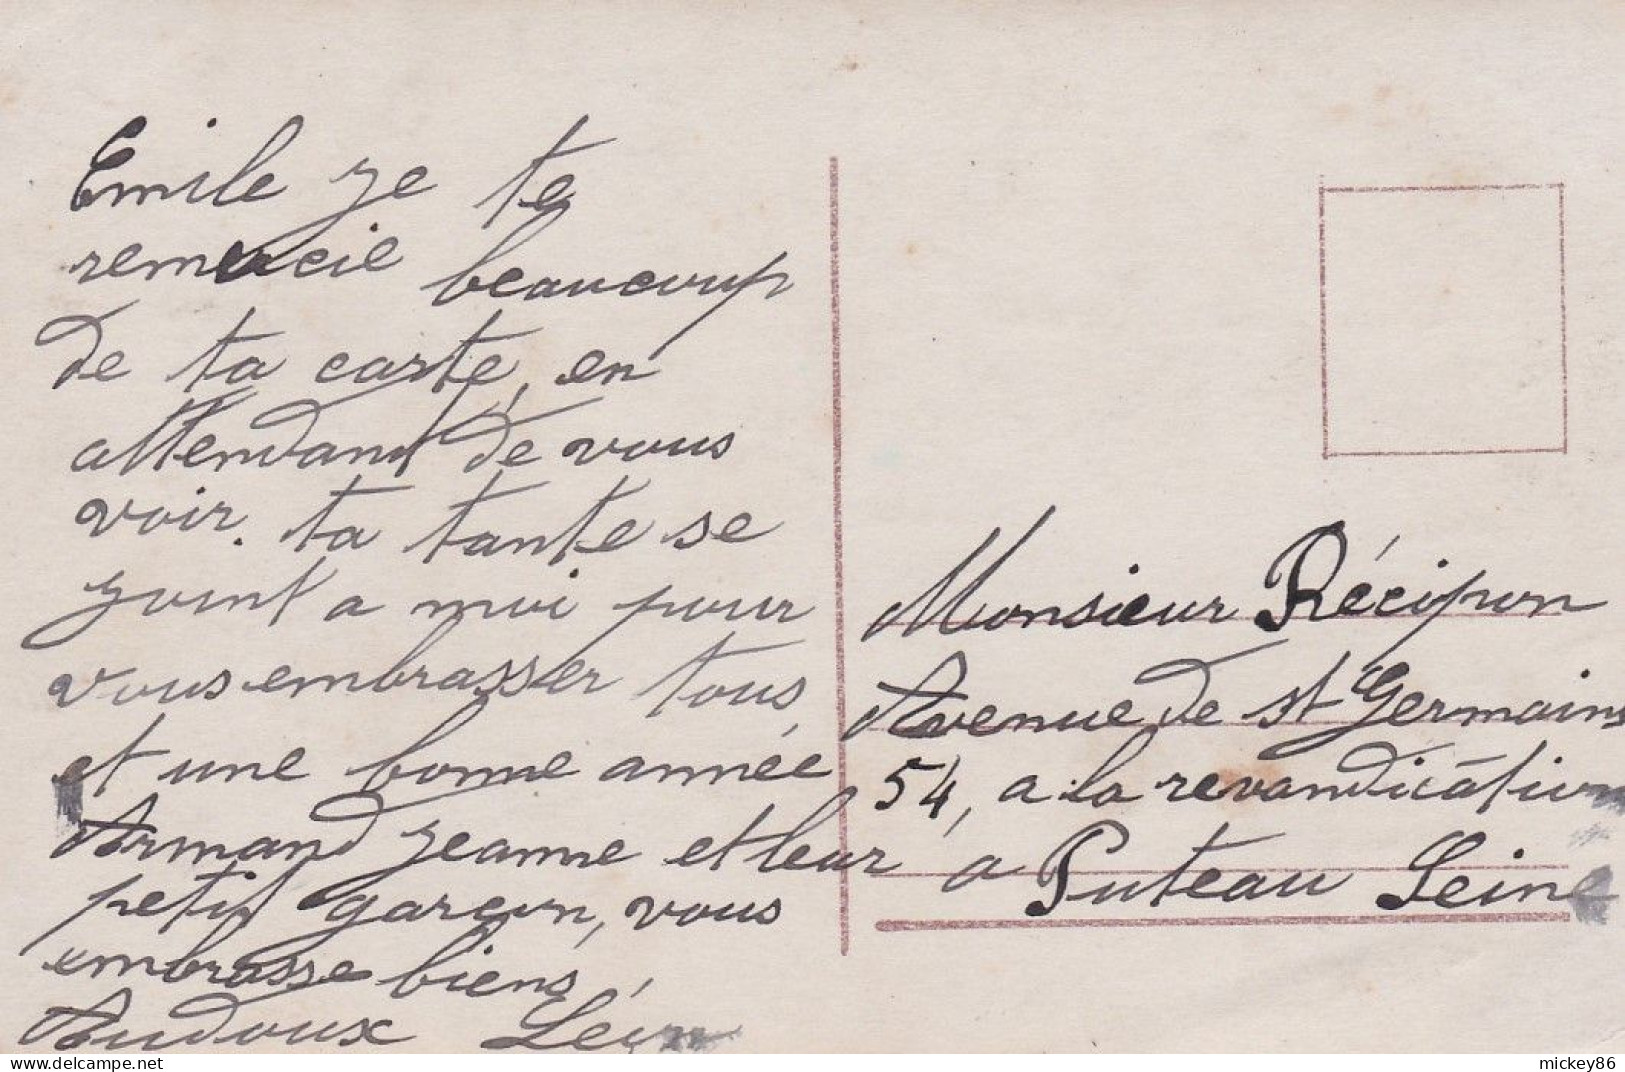 Emile je te
remercie beaucoup
de ta carte, en
attendant de vous
voir. ta tante se
joint a moi pour
vous embrasser tous,
et une bonne année
Armand Jeanne et leur
petit garçon, vous
embrasse biens,
Audoux Léon
Monsieur Récipon
Avenue de St Germains
54, a la revandication
a Puteau Seine
delcampe.net
mickey86